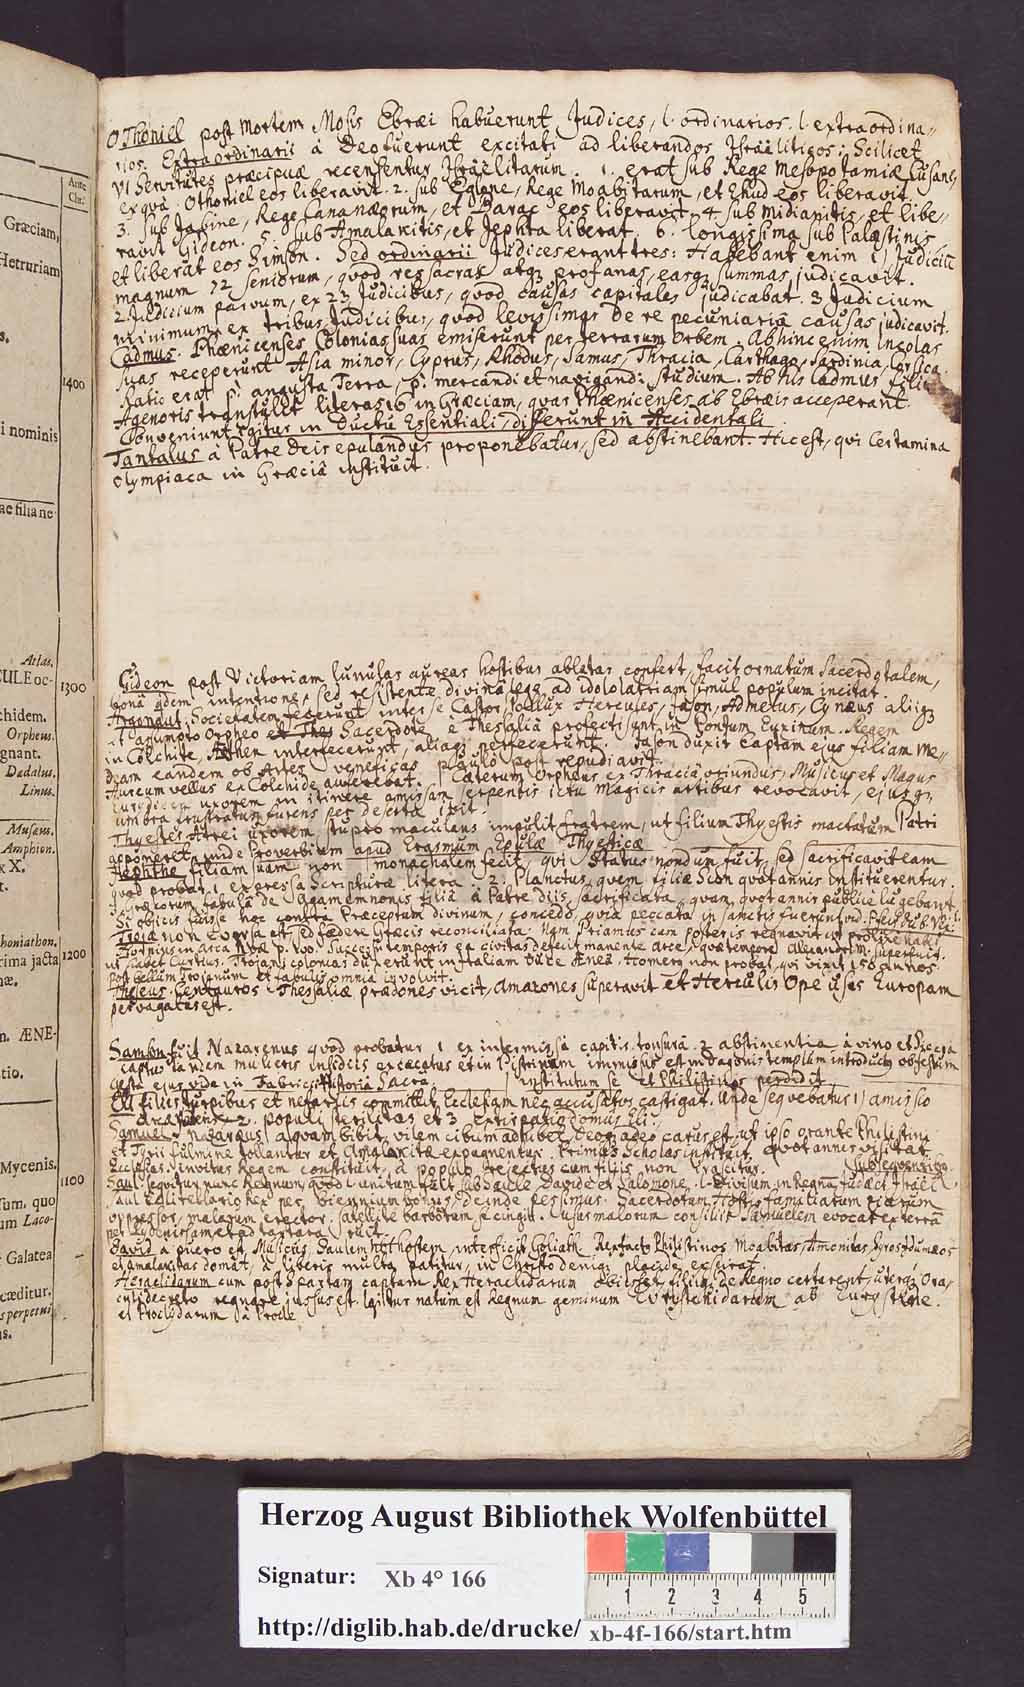 Ante
Chr.
Græciam,
Hetruriam
s.
1400
i nominis
ae filia ne
Atlas.
CULE oc-
1300
chidem.
Orpheus.
gnant.
Dadalus.
Linus.
Musæus.
Amphion.
x X.
t.
honiathon.
rima jacta
1200
næ.
n. ÆNE-
tio.
Mycenis.
1100
sum. quo
um Laco-
Galatea
cæditur.
s perpetui
is.
OThoniel post mortem Mosis Ebræi habuerunt Judices, l. ordinarios. l. extraordina-
rios. Extraordinarii à Deo fuerunt excitati ad liberandos Israëliticos; Scilicet
VI Servitutes præcipuæ recensentur Israëlitarum. 1. erat sub Rege Mesopotamiæ Cusane,
ex qua Othoniel eos liberavit. 2. sub Eglone, Rege Moabitarum, et Ehud eos liberavit.
3. sub Jabine, Rege Cananæorum, et Barac eos liberavit. 4. sub Midianitis, et libe-
ravit Gideon. 5. sub Amalakitis, et Jephta liberat. 6. longissima sub Palæstinis
et liberat eos Simson. Sed ordinarii Judices erant tres: Habebant enim 1) Judiciū
magnum 72 Seniorum, quod res sacras atq; profanas, easq; summas, judicavit.
2. Judicium parvum, ex 23 Judicibus, quod causas capitales judicabat. 3 Judicium
minimum ex tribus Judicibus, quod levissimas de re pecuniariâ causas judicavit.
Cadmus. Phœnicenses Colonias suas emiserunt per terrarum Orbem. Abhinc enim Incolas
suas receperunt Asia minor, Cyprus, Rhodus, Samus, Thracia, Carthago, Sardinia, Corsica.
Ratio erat angusta Terra mercandi et navigand: studium. Ab his Cadmus filiu
Agenoris transtulit literas 16 in Græciam, quas Phœnicenses ab Ebræis acceperant.
Conveniunt igitur in Ductu Essentiali, differunt in Accidentali.
Tantalus à Patre Deis epulandus proponebatur, sed abstinebant. Hic est, qui Certamina
olympiaca in Græciâ instituit.
Gideon post Victoriam lunulas aureas hostibus ablatas confert, facit ornatum Sacerdotalem,
bonâ qdem intentione, sed resistente divina lege, ad idololatriam simul populum incitat.
Argonaut: Societatem fecerunt inter se Castor, Pollux Hercules, Jason, Admetus, Cynæus aliiq;
ut assumpto Orpheo Sacerdote è Thessaliâ profecti sunt in Pontum Euxinum. Regem
in Colchite, interfecerunt, aliaq; perfecerunt. Jason duxit captam ejus filiam Me-
deam eandem ob Artes veneficas paulò post repudiavit.
Aureum vellus ex Colchide auferebat. Cæterum Orpheus ex Thraciâ oriundus, Musicus et Magus
Eurydicen uxorem in itinere amissam serpentis ictu magicis artibus revocavit, ejusq;
umbra frustratum furens per deserta ivit.
Thyestes Atrei uxorem stupro maculans impulit fratrem, ut filium Thyestis mactatum Patri
apponeret, unde Proverbium apud Erasmum Epulæ Thyesticæ
Jephthe filiam suam non monachalem fecit, qui Status nondum fuit, sed sacrificavit eam
quod probat 1 expressa Scripturæ litera. 2. Planctus, quem filiæ Sion quotannis instituerentur.
Græcorum fabula de Agamemnonis filiâ à Patre diis sacrificata, quam quotannis publice lugebant.
Si obicis fuisse hoc contra Præceptum divinum, concedo, quia peccata in sanctis fuerunt
Troia non eversa est sed fœdere Græcis reconciliata. Nam Priamius cum posteris regnavit
Successu temporis ea civitas defecit manente Arce, quæ tempore Alexandri m. superfuit.
ut habet Curtius. Trojani colonias duxerunt in Italiam Duce Æneâ. Homerg non probat, qui vixit 150 annos
post bellum Trojanum et fabulis omnia involvit.
Theseus Centauros Thessaliæ prædones vicit, Amazones superavit et Herculis Ope usus Europam
pervagatus est.
Samson fuit Nazarenus quod probatur 1 ex intermissa capitis tonsurâ. 2 abstinentia à vino et
captus tandem mulieris insidiis excæcatus et in Pistrinum immissus est in Dagonis templum introductus
gesta ejus vide in Fabricii Historiâ Sacra. institutum se et Philistinos perdidit.
Eli filiis turpibus et nefariis committit Ecclesiam nec accusatos castigat. Unde sequebatur 1) amissio
2. populi sterilitas et 3 extirpatio domus Eli.
Samuel Nazaræus aquam bibit, vilem cibum adhibet Deo adeo carus est, ut ipso orante Philistini
et Tyrii fulmine tollantur et Amalakitæ expugnentur. Primas Scholas instituit, quotannis visitat
Ecclesias. invitus Regem constituit, à populo rejectus cum filiis non irascitur.
Saul. Sequitur nunc Regnum, quod l. unitum fuit sub Saule Davide et Salomone, l. Divisum in Regnum Judæ et Israel
Saul ex literatorio Rex per biennium bonus, deinde pessimus. Sacerdotum Hostis familiarium
oppressor, malarum erector, satellite barbarum se cingit. Usus malorum consiliis Samuelem evocat ex terrâ
David à puero est Musicus Saulem hosthem, interficit Goliath. Rex factus Philistinos, Moabitas, Amonitas, Syros, Idumæos
et Amalakitas domat, à liberis multa patitur, in Christo deniq; placide exspirat.
Heraclidarum cum post Spartam captam Rex Heraclidarum obiisset, filii de Regno certarent, uterq; Ora-
culi decreto regnare jussus est. Igitur natum est Regnum geminum Eurysthenidarum ab Eurysthene.
et Proclydarum à Procle
Herzog August Bibliothek Wolfenbüttel
Signatur: Xb 4° 166
http://diglib.hab.de/drucke/ xb-4f-166/start.htm
1 2 3 4 5